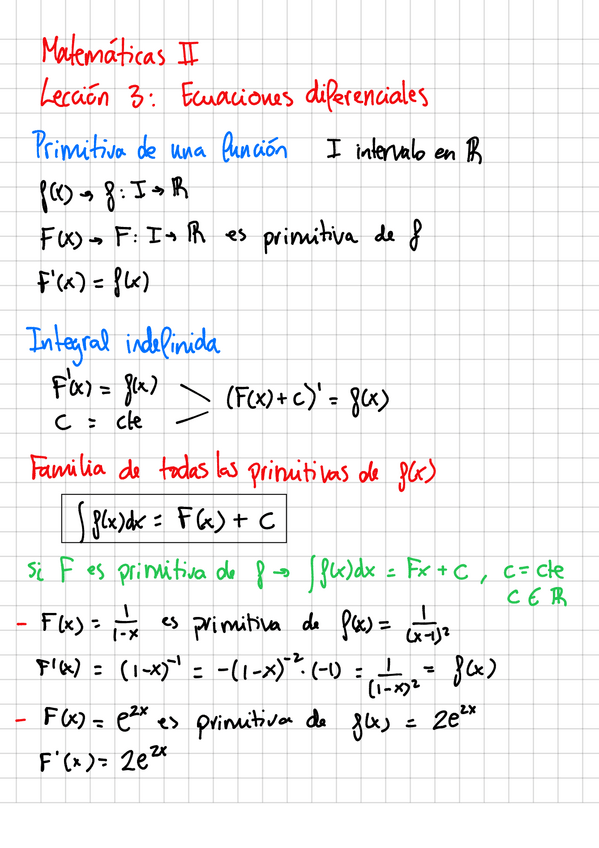 Matemáticas II
Lección 3: Ecuaciones diferenciales
Primitiva de una función I intervalo en ℝ
f(x) → f: I → ℝ
F(x) → F: I → ℝ es primitiva de f
F'(x) = f(x)
Integral indefinida
F'(x) = f(x)
C = cte
(F(x) + C)' = f(x)
Familia de todas las primitivas de f(x)
∫ f(x)dx = F(x) + C
Si F es primitiva de f → ∫ f(x)dx = Fx + C, C = cte
C ∈ ℝ
- F(x) = 1/(1-x) es primitiva de f(x) = 1/(x-1)²
F'(x) = (1-x)⁻¹ = -(1-x)⁻² · (-1) = 1/(1-x)² = f(x)
- F(x) = e²ˣ es primitiva de f(x) = 2e²ˣ
F'(x) = 2e²ˣ